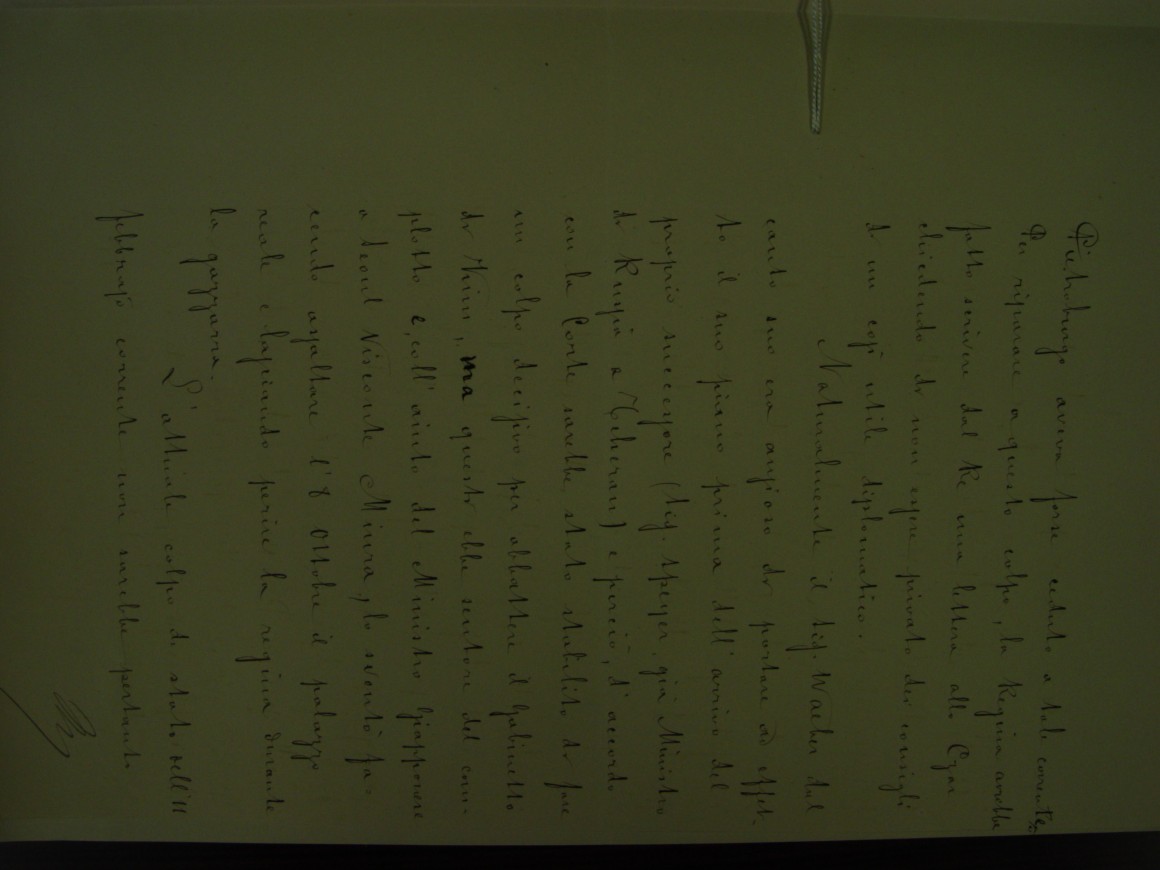 Pietroburgo aveva forse ceduto a tale corrente,
Per riparare a questo colpo, la Regina avrebbe
fatto scrivere dal Re una lettera allo Czar
chiedendo di non essere privato dei consigli
di un così utile diplomatico.
Naturalmente il Sig. Waeber dal
canto suo era ansioso di portare ad effet-
to il suo piano prima dell'arrivo del
proprio successore (Sig. Speyer, già Ministro
di Russia a Teheran) e perciò, d'accordo
con la Corte sarebbe stato stabilito di fare
un colpo decisivo per abbattere il Gabinetto
di Kim, ma questo ebbe sentore del com-
plotto e, coll'aiuto del Ministro Giapponese
a Seoul Visconte Miura, lo sventò fa-
cendo assaltare l'8 Ottobre il palazzo
reale e lasciando perire la regina durante
la gazzarra.
L'attuale colpo di stato dell'11
febbrajo corrente non sarebbe pertanto